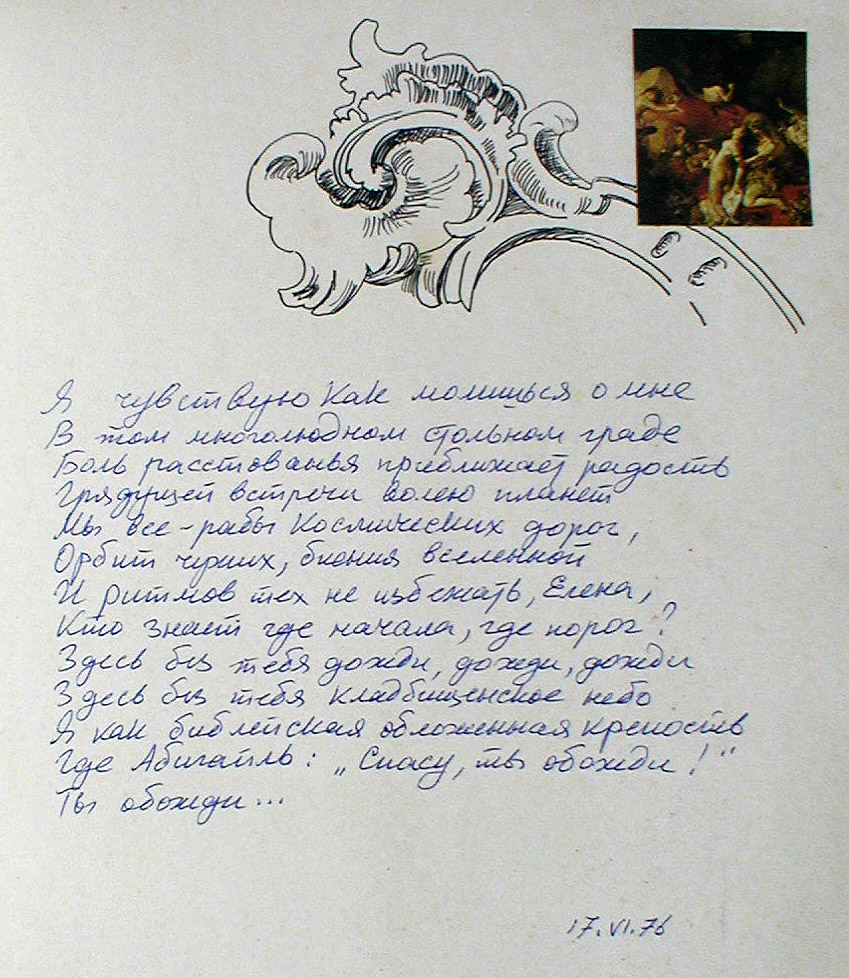 Я чувствую как молишься о мне
В том многолюдном стольном граде
Боль расстованья приближает радость
Грядущей встречи волею планет
Мы все - рабы Космических дорог,
Орбит чужих, биения вселенной
И ритмов тех не избежать, Елена,
Кто знает где начала, где порог?
Здесь без тебя дожди, дожди, дожди
Здесь без тебя кладбищенское небо
Я как библейская обложенная крепость
Где Абигаиль: „Спасу, ты обожди!“
Ты обожди...
17.VI.76